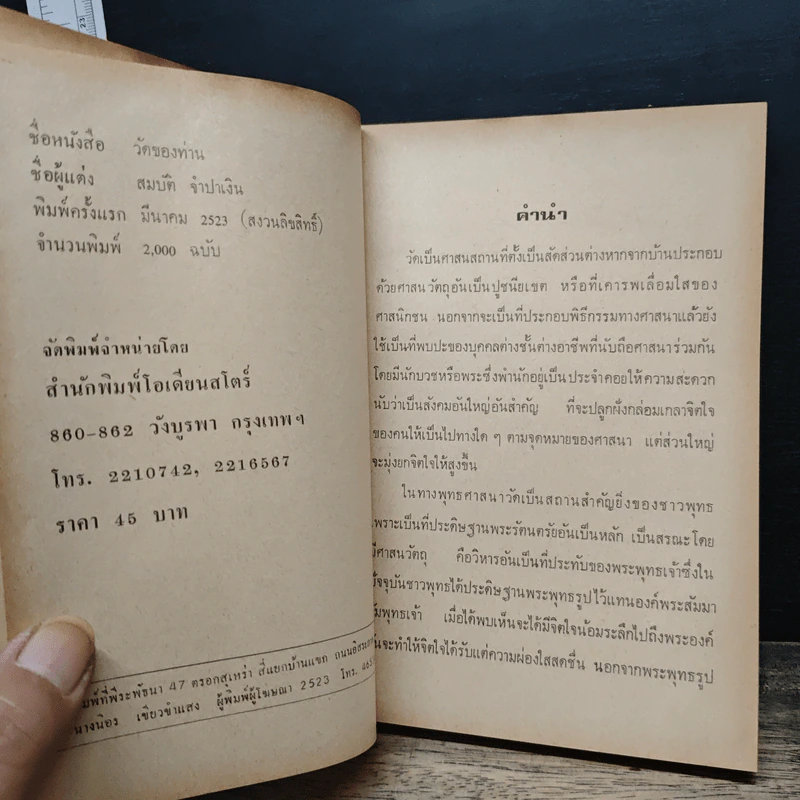 23
ชื่อหนังสือ วัดของท่าน
ชื่อผู้แต่ง สมบัติ จำปาเงิน
พิมพ์ครั้งแรก มีนาคม 2523 (สงวนลิขสิทธิ์)
จำนวนพิมพ์ 2,000 ฉบับ
จัดพิมพ์จำหน่ายโดย
สำนักพิมพ์โอเดียนสโตร์
860-862 วังบูรพา กรุงเทพฯ
โทร. 2210742, 2216567
ราคา 45 บาท
พิมพ์ที่พีระพัธนา 47 ตรอกสุเหร่า สี่แยกบ้านแขก ถนนอิสรภาพ โทร.
นางนิอร เขียวขำแสง ผู้พิมพ์ผู้โฆษณา 2523
คำนำ
วัดเป็นศาสนสถานที่ตั้งเป็นสัดส่วนต่างหากจากบ้านประกอบ
ด้วยศาสนวัตถุอันเป็นปูชนียเขต หรือที่เคารพเลื่อมใสของ
ศาสนิกชน นอกจากจะเป็นที่ประกอบพิธีกรรมทางศาสนาแล้วยัง
ใช้เป็นที่พบปะของบุคคลต่างชั้นต่างอาชีพที่นับถือศาสนาร่วมกัน
โดยมีนักบวชหรือพระซึ่งพำนักอยู่เป็นประจำคอยให้ความสะดวก
นับว่าเป็นสังคมอันใหญ่อันสำคัญ ที่จะปลูกฝั่งกล่อมเกลาจิตใจ
ของคนให้เป็นไปทางใด ๆ ตามจุดหมายของศาสนา แต่ส่วนใหญ่
จะมุ่งยกจิตใจให้สูงขึ้น
ในทางพุทธศาสนาวัดเป็นสถานสำคัญยิ่งของชาวพุทธ
เพราะเป็นที่ประดิษฐานพระรัตนตรัยอันเป็นหลัก เป็นสรณะโดย
มีศาสนวัตถุ คือวิหารอันเป็นที่ประทับของพระพุทธเจ้าซึ่งใน
ปัจจุบันชาวพุทธได้ประดิษฐานพระพุทธรูปไว้แทนองค์พระสัมมา
สัมพุทธเจ้า เมื่อได้พบเห็นจะได้มีจิตใจน้อมระลึกไปถึงพระองค์
อันจะทำให้จิตใจได้รับแต่ความผ่องใสสดชื่น นอกจากพระพุทธรูป